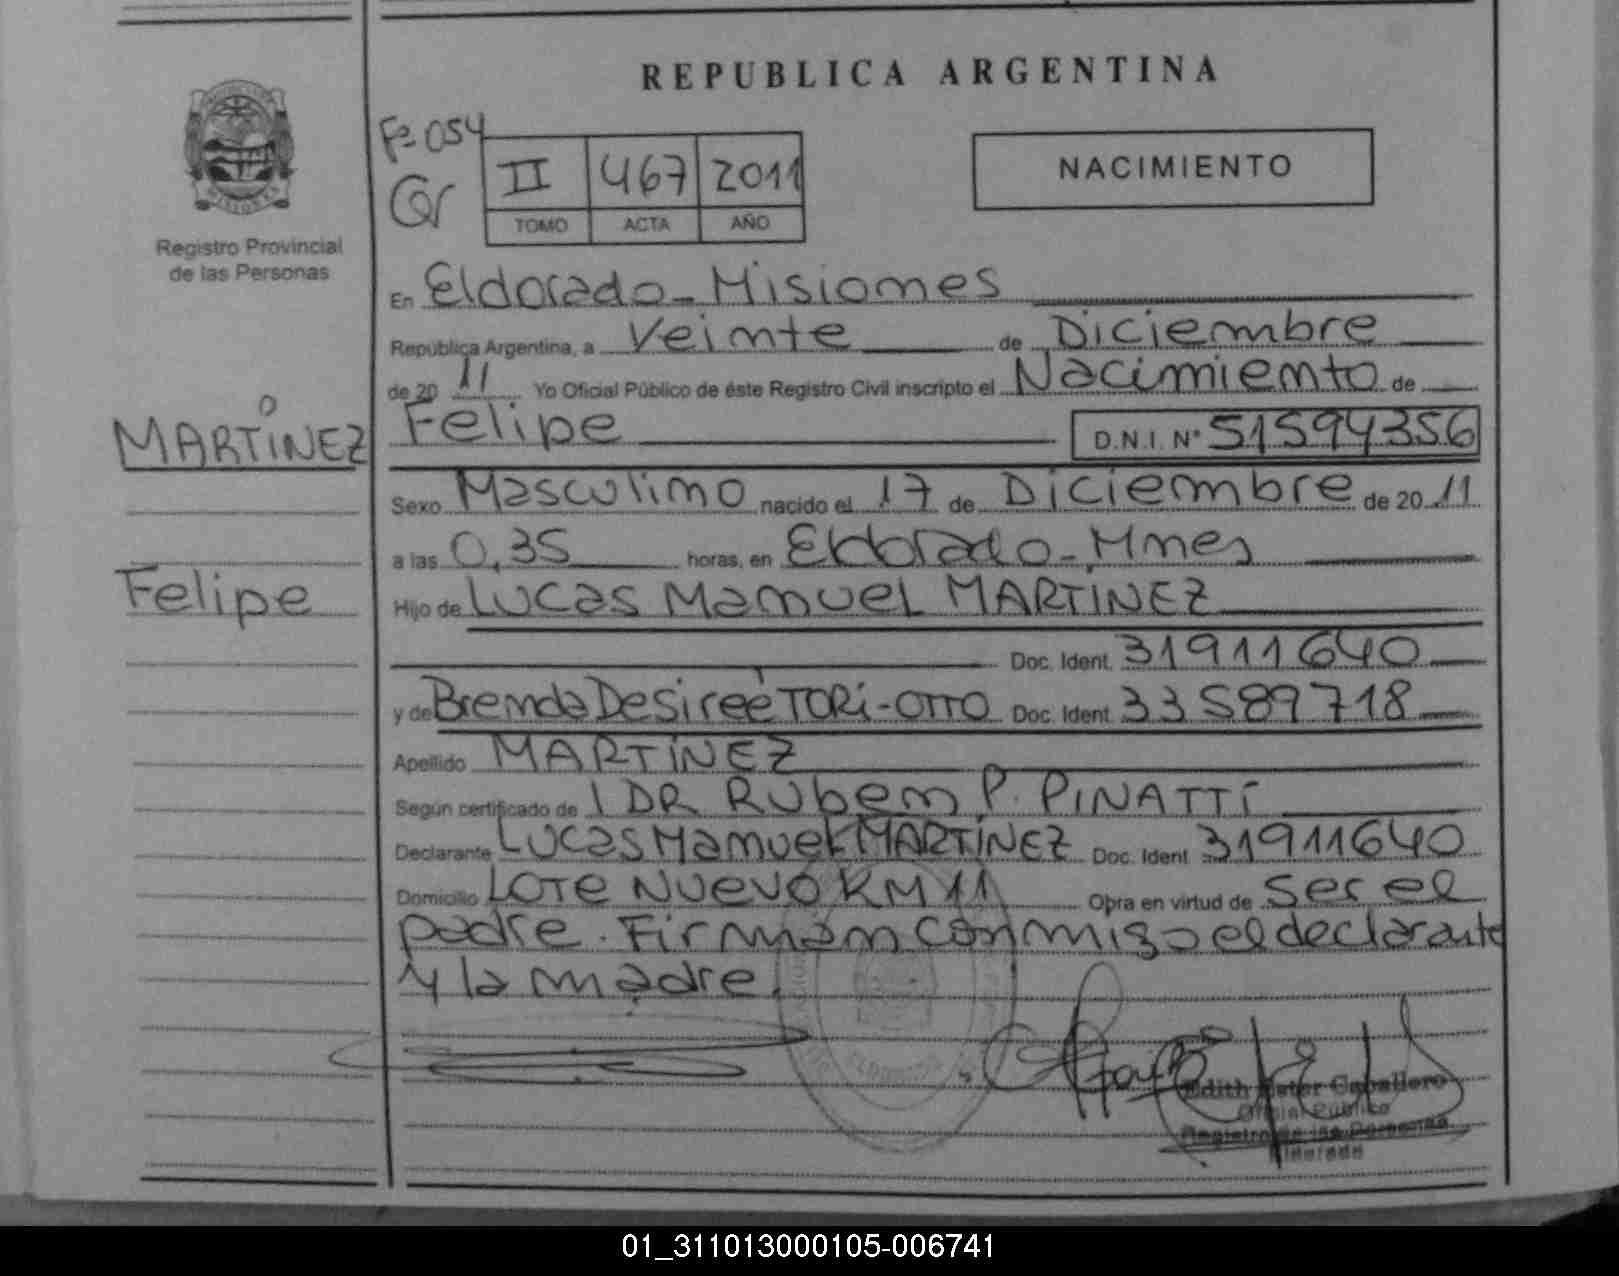 REPUBLICA ARGENTINA
Registro Provincial
de las Personas
Fº 054
II 467 2011
TOMO ACTA AÑO
NACIMIENTO
En Eldorado - Misiones
República Argentina, a Veinte de Diciembre
de 20 11 Yo Oficial Público de éste Registro Civil inscripto el Nacimiento de
MARTÍNEZ
Felipe D.N.I. Nº 51594356
Sexo Masculino nacido el 17 de Diciembre de 20 11
a las 0,35 horas, en Eldorado - Mnes
Felipe
Hijo de Lucas Manuel MARTÍNEZ
Doc. Ident. 31911640
y de Brenda Desireé TORi-OTTO Doc. Ident. 33589718
Apellido MARTÍNEZ
Según certificado de DR Ruben P. PINATTi
Declarante Lucas Manuel MARTÍNEZ Doc. Ident 31911640
Domicilio LOTE NUEVO KM 11 Obra en virtud de ser el
padre. Firman conmigo el declarante
y la madre.
Edith Ester Caballero
Oficial Público
Registro de las Personas
Eldorado
01_311013000105-006741